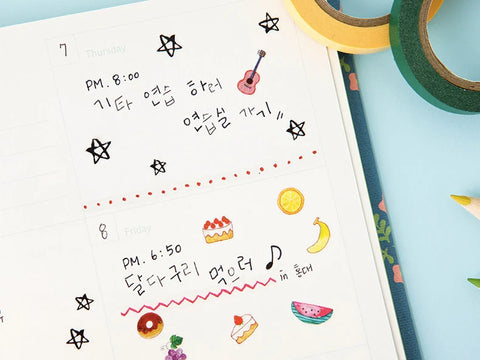 7 Thursday
PM. 8:00
기타 연습 하러
연습실 가기 〃
8 Friday
PM. 6:50
달다구리 먹으러
in 홍대